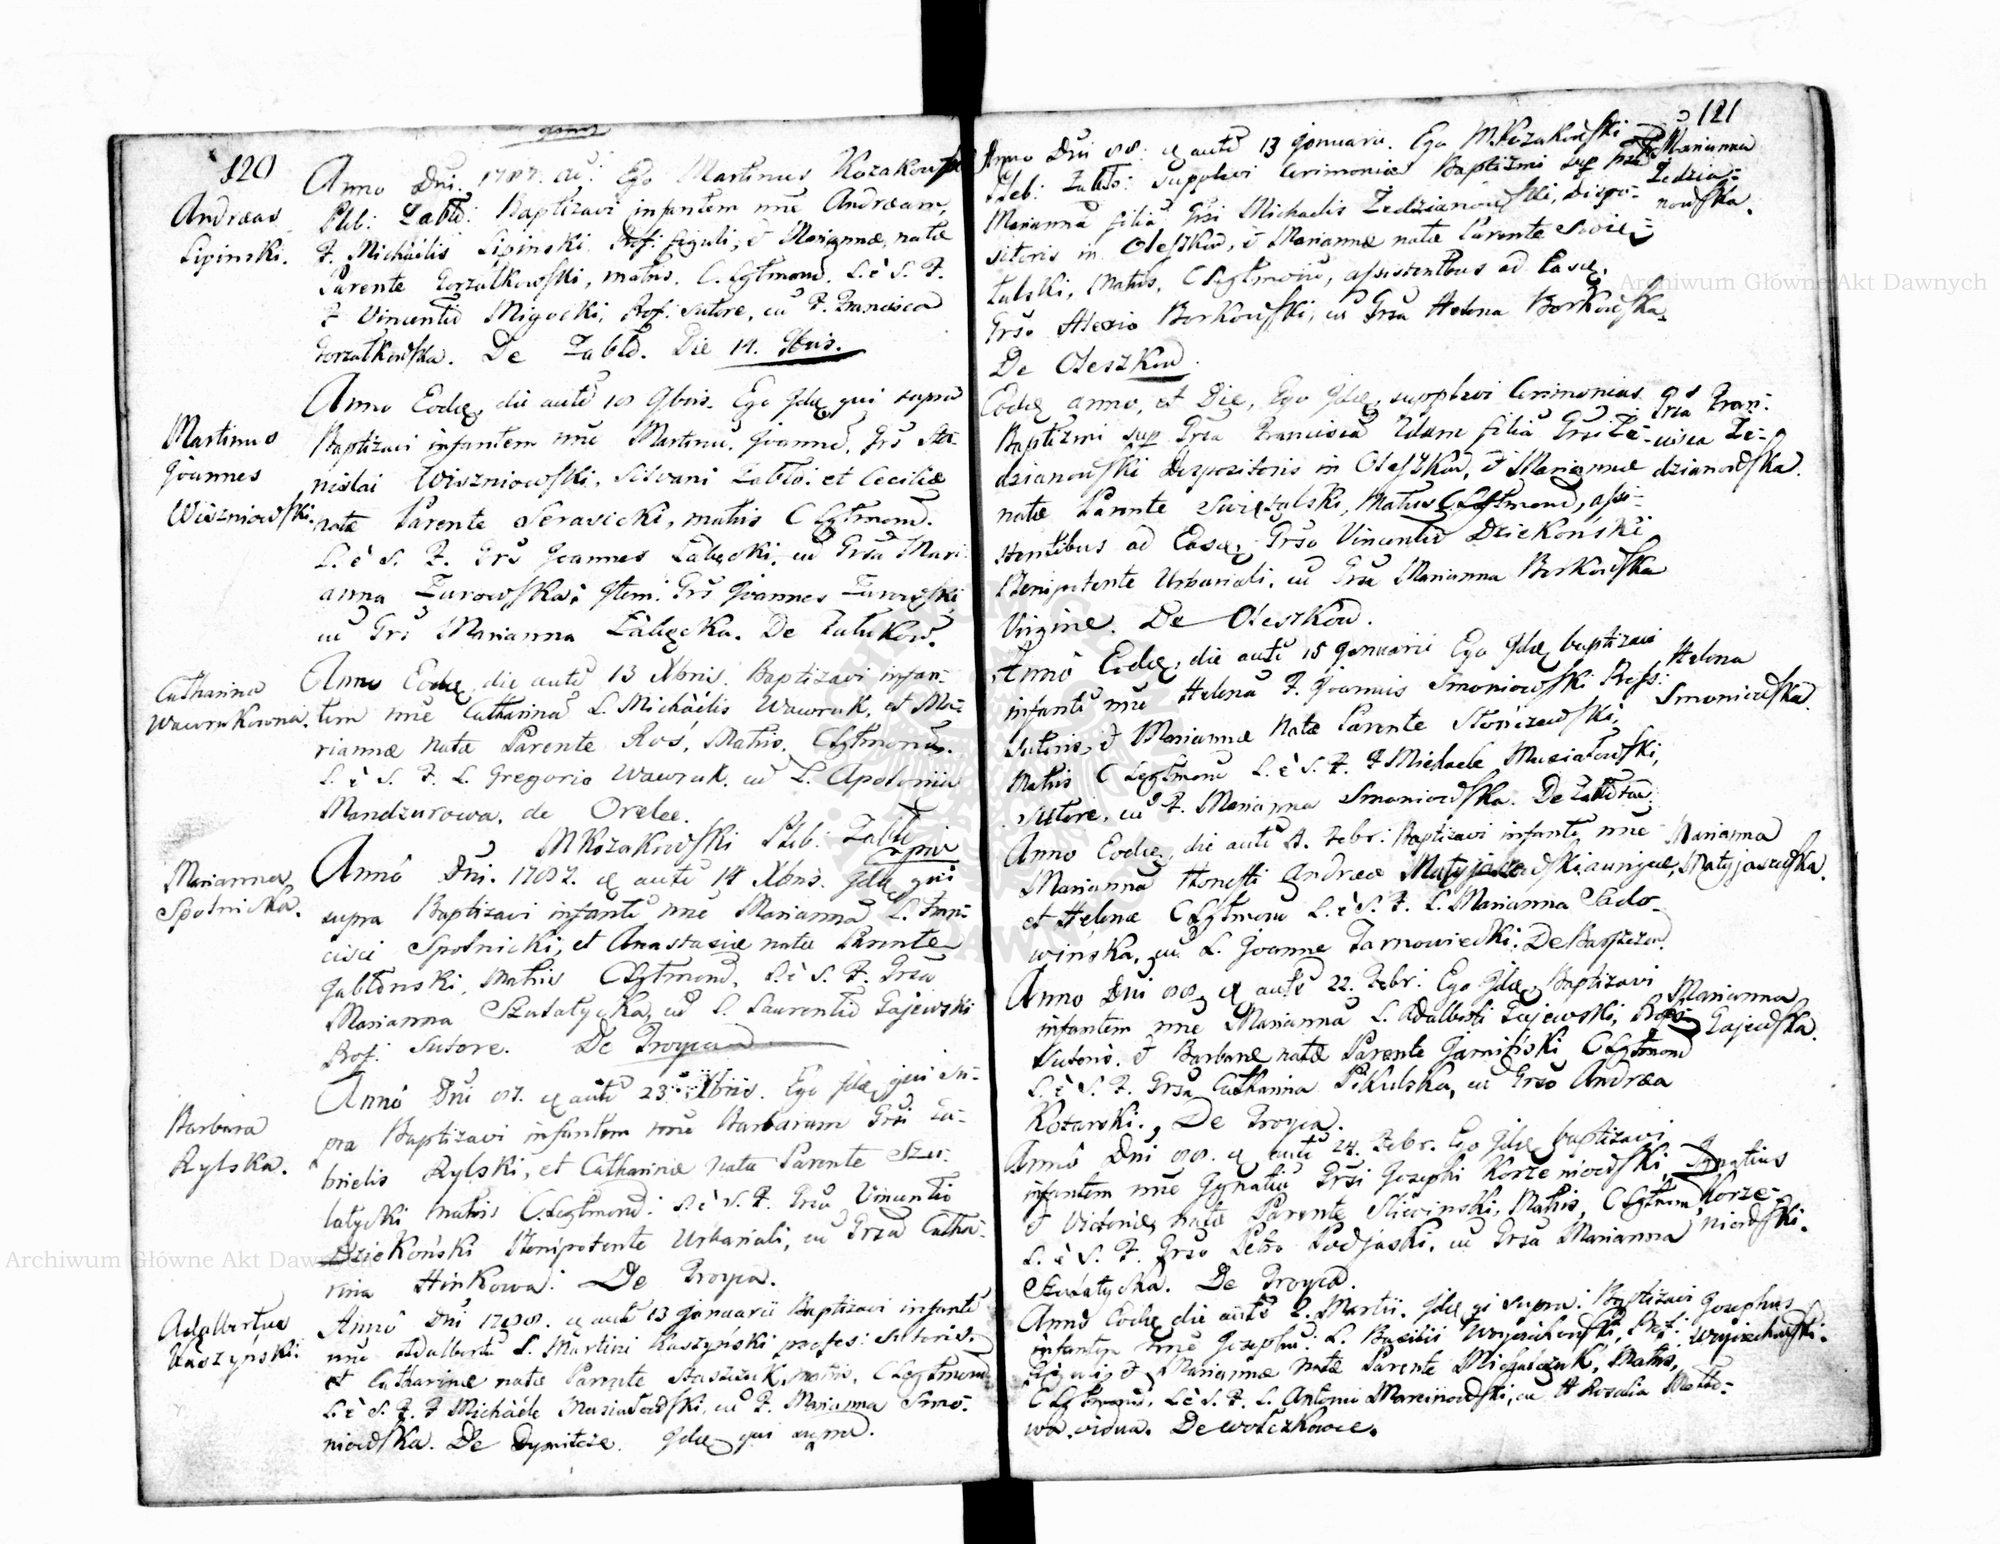 120
Andreas
Lipinski.
Anno Dni. 1787. Ego Martinus Kozakowski
Pleb: Zabło: Baptizavi infantem nne Andream,
F. Michaelis Lipinski Prof: figuli, et Mariannæ, natæ
Parente Gorzałkowski, matris, C. Legtmorū. L. è S. F.
F Vincentiū Migocki, Prof: sutore, cū F. Francisca
Gorzałkowska. De Zabło. Die 14. 9bris.
Martinus
Joannes
Wiszniowski.
Anno Eodē, die autē 18 9bris. Ego Idē, qui supra
Baptizavi infantem nne Martinū. Joannē, Grsi Sta-
nislai Wiszniowski, Silvani Zabło: et Ceciliæ
natæ Parente Serasicki, matris C Legtmorū.
L. è S. F. Grs Joannes Łabęcki, cū Grsa Mari
anna Zurowska; Item: Grs Joannes Zurowski
cū Grs Marianna Łabęcka. De Tułuków.
Catharina
Wawrukowna.
Anno Eodē, die autē 13 Xbris. Baptizavi infan-
tem nne Catharinā L. Michaelis Wawruk, et Ma-
riannæ natæ Parente Roś, Matris, C Legtmorū.
L. è S. F. L. Gregorio Wawruk, cū L. Apolonia
Mandzurowa, de Orelec.
MKozakowski Pleb: Zabło
Marianna
Spolnicka.
Annô Dni. 1787. autē 14 Xbris. Idē qui
supra Baptizavi infantē nne Mariannā L. Fran-
cisci Spolnicki, et Anastasiæ natæ Parente
Jabłonski, Matris C Legtmorū, L. è S. F. Grsa
Marianna Szałatycka, cū L. Laurentiō Gajewski
Prof: Sutore. De Troyca
Barbara
Rylska.
Annô Dni 87. autē 23 Xbris. Ego Idē, qui su-
pra Baptizavi infantem nne Barbaram Grsi Ga-
brielis Rylski, et Catharinæ nata Parente Sza-
łatycki matris C. Legtmorū: L. è S. F. Grsō Vincentio
Dziekoński Plenipotente Urbariali, cū Grsa Catha-
rina Hinkowa: De Troyca.
Adalbertus
Kaszyński:
Annô Dni 1788. autē 13 Januarii Baptizavi infantē
nne Adalbertū L. Martini Kaszyński profes: Sutoris.
et Catharinæ natæ Parente Staszczuk, matris, C Legtmorū
L. è S. F. F Michaele Musiałowski, cū F. Marianna Smo-
niowska. De Dymitcze. Idē qui supra.
121
Anno Dni 88. autē 13 Januarii. Ego M.Kozakowski
Pleb: Zabło: supplevi Cerimonias Baptizmi sup Grsa
Mariannā filiā Grsi Michaelis Zedzianowski, Dispo-
sitoris in Oleszków, et Mariannæ natæ Parente Świę-
tulski, Matris, C Legtmorū, assistentibus ad Easdē.
Grsō Alexio Borkowski, cū Grsa Helena Borkowska.
De Oleszków.
Marianna
Zedzia-
nowska.
Eodē anno, et Die, Ego Idē, supplevi Cerimonias
Baptizmi sup Grsa Franciscā filiā Grsi Ze-
dzianowski Dispositoris in Oleszków, et Mariannæ
natæ Parente Świętulski, Matris C Legtmorū, assi-
stentibus ad Easdē. Grsō Vincentiō Dziekonski
Plenipotente Urbariali, cū Grsa Marianna Borkowska
Virgine. De Oleszków.
Grsa Fran-
cisca Ze-
dzianowska.
Annô Eodē, die autē 15 Januarii Ego Idē baptizavi
infantē nne Helenā F. Joannis Smoniowski Profs:
Sutoris, et Mariannæ Natæ Parente Słonczewski,
Matris C Legtmorū L. è S. F. F Michaele Musiałowski,
Sutore, cū F. Marianna Smoniowska. De Zabłotow.
Helena
Smoniowska.
Anno Eodē, die autē Febr: Baptizavi infantē, nne
Mariannā Honesti Andreæ Matyjaszewski
et Helenæ C Legtmorū L. è S. F. L. Marianna Sado-
winska, cū L. Joanne Tarnowiecki.
Marianna
Matyjaszewska.
Anno Dni 88. autē 22. Febr: Ego Idē, Baptizavi
infantem nne Mariannā L. Adalberti Gajewski, Profs:
Sutoris. et Barbaræ natæ Parente C Legtmorū
L. è S. F. Grsa Catharina Pikulska, cū Grsō Andrea
Kotarski., De Troyca.
Marianna
Gajewska.
Annô Dni 88. autē 24. Febr. Ego Idē baptizavi
infantem nne Ignatiū Grsi Josephi Korzeniowski,
et Victoriæ, natæ Parente Sliwinski, Matris, C Legtmorū
L. è S. F. Grsō Petro Podjaski, cū Grsa Marianna
Szałatycka. De Troyca.
Ignatius
Korze-
niowski.
Annô Eodē die autē 2. Martii. Idē qi supra: Baptizavi
infantem nne Josephū: L. Basilii Woyciechowski, Prof:
Figuli, et Mariannæ natæ Parente Michalczuk, Matris,
C Legtmorū, L. è S. F. L. Antonio Marcinowski, cū H Rosalia
vidua. De Wołczkowce.
Josephus
Woyciechowski.
Archiwum Główne Akt Dawnych
Archiwum Główne Akt Dawnych